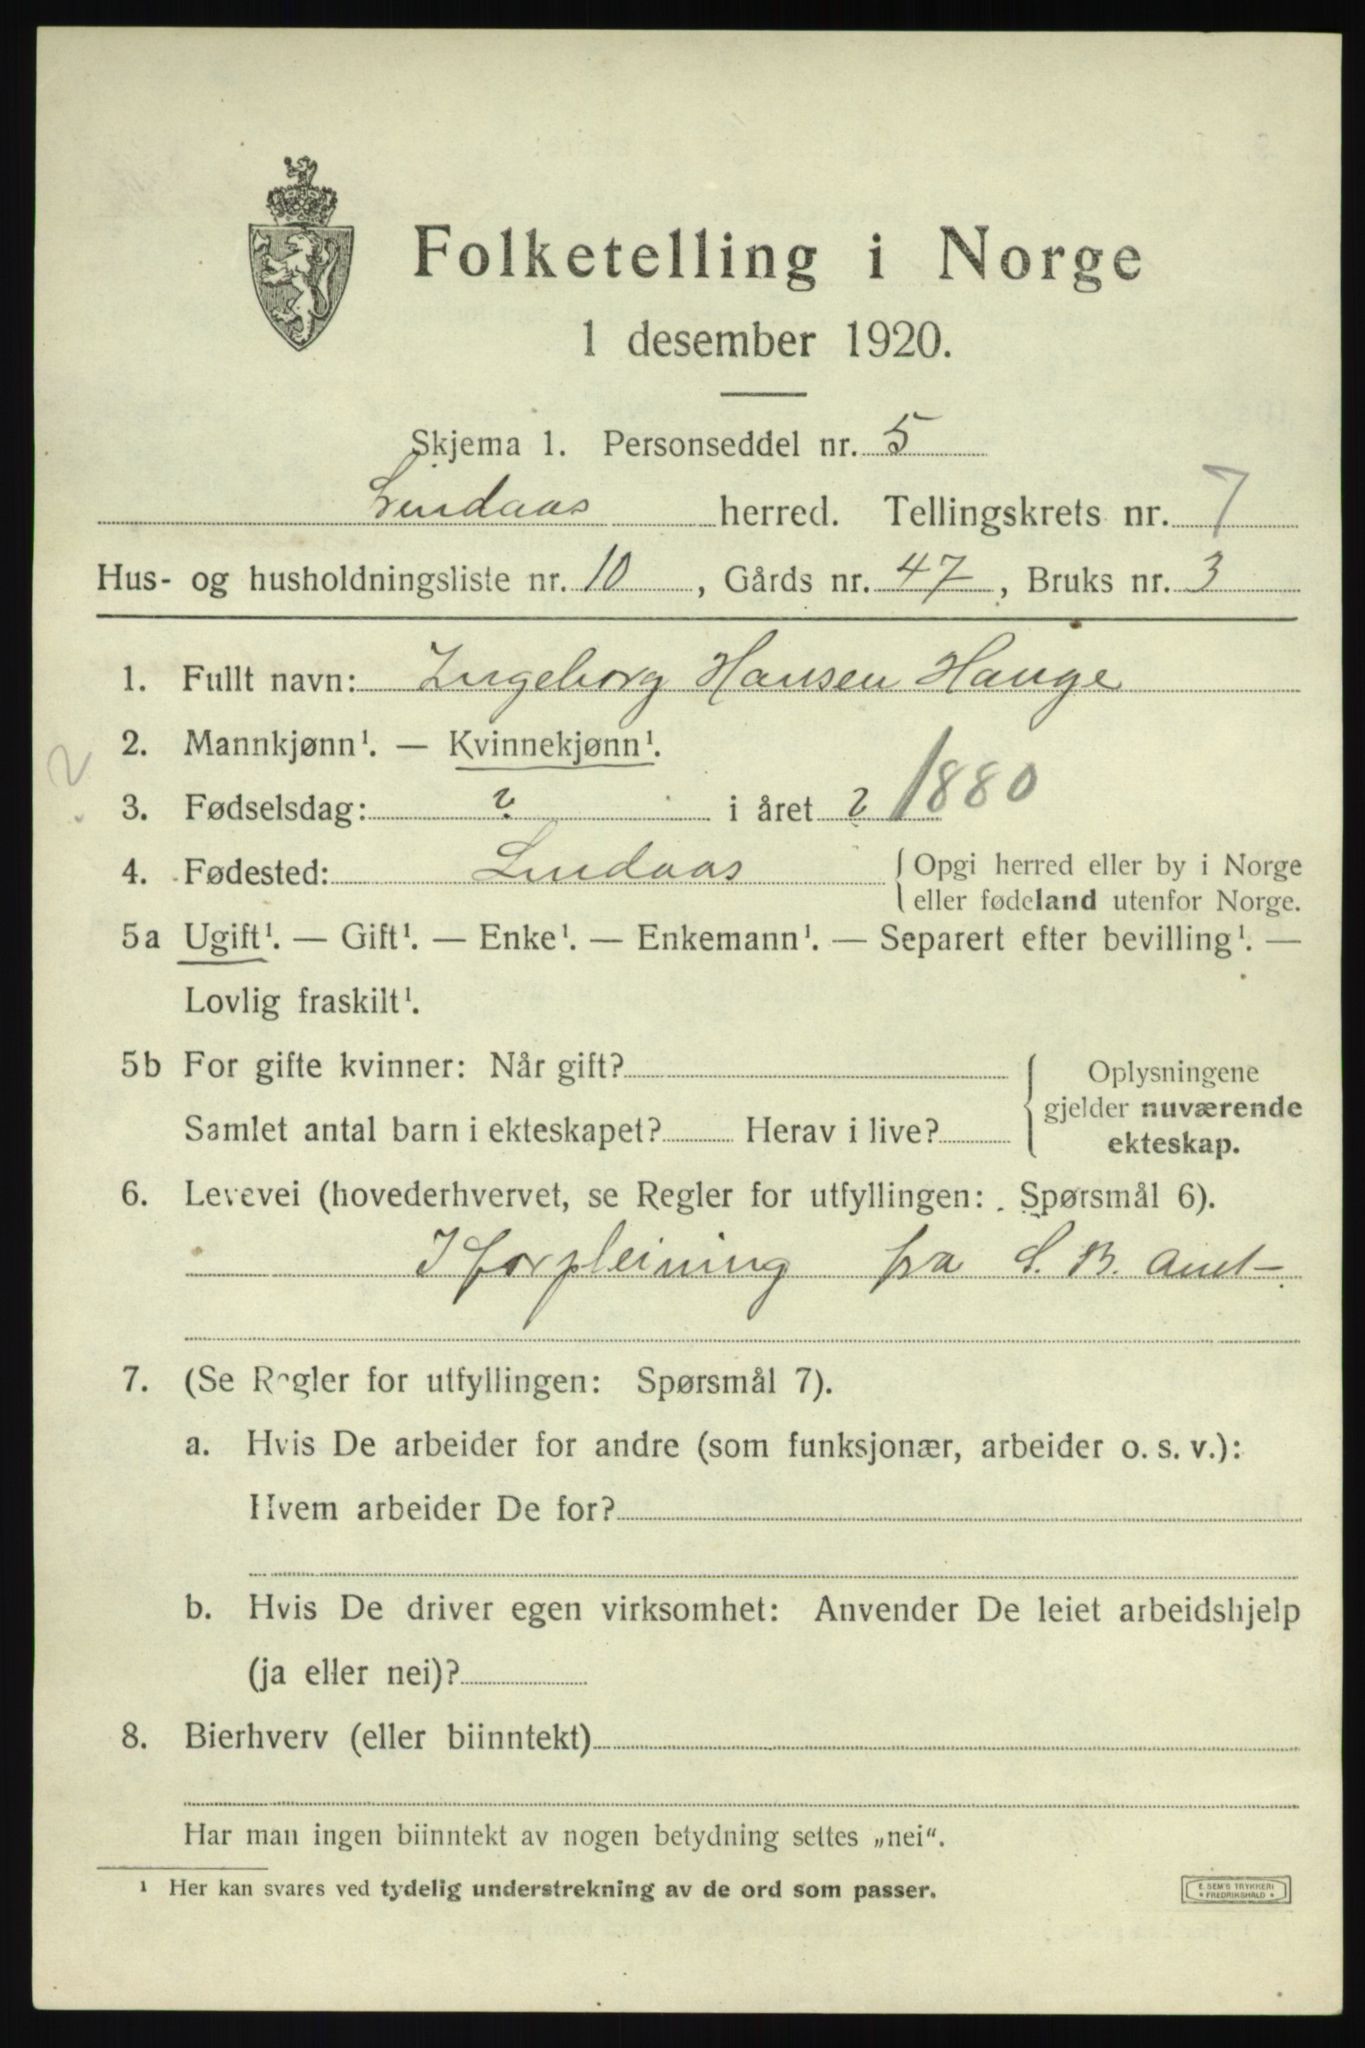 Folketelling i Norge
1 desember 1920.
Skjema 1. Personseddel nr. 5
Lindaas herred. Tellingskrets nr. 7
Hus- og husholdningsliste nr. 10, Gårds nr. 47, Bruks nr. 3
1. Fullt navn: Ingeborg Hansen Hauge
2. Mannkjønn¹. — Kvinnekjønn¹.
2
3. Fødselsdag: ? i året ? 1880
4. Fødested: Lindaas { Opgi herred eller by i Norge
eller fødeland utenfor Norge.
5a Ugift¹. — Gift¹. — Enke¹. — Enkemann¹. — Separert efter bevilling¹. —
Lovlig fraskilt¹.
5b For gifte kvinner: Når gift? { Oplysningene
gjelder nuværende
Samlet antal barn i ekteskapet? Herav i live?
ekteskap.
6. Levevei (hovederhvervet, se Regler for utfyllingen: Spørsmål 6).
I forpleining fra S. B. Amt
7. (Se Regler for utfyllingen: Spørsmål 7).
a. Hvis De arbeider for andre (som funksjonær, arbeider o. s. v.):
Hvem arbeider De for?
b. Hvis De driver egen virksomhet: Anvender De leiet arbeidshjelp
(ja eller nei)?
8. Bierhverv (eller biinntekt)
Har man ingen biinntekt av nogen betydning settes „nei“.
¹ Her kan svares ved tydelig understrekning av de ord som passer.
E. SEM'S TRYKKERI
* FREDRIKSHALD *